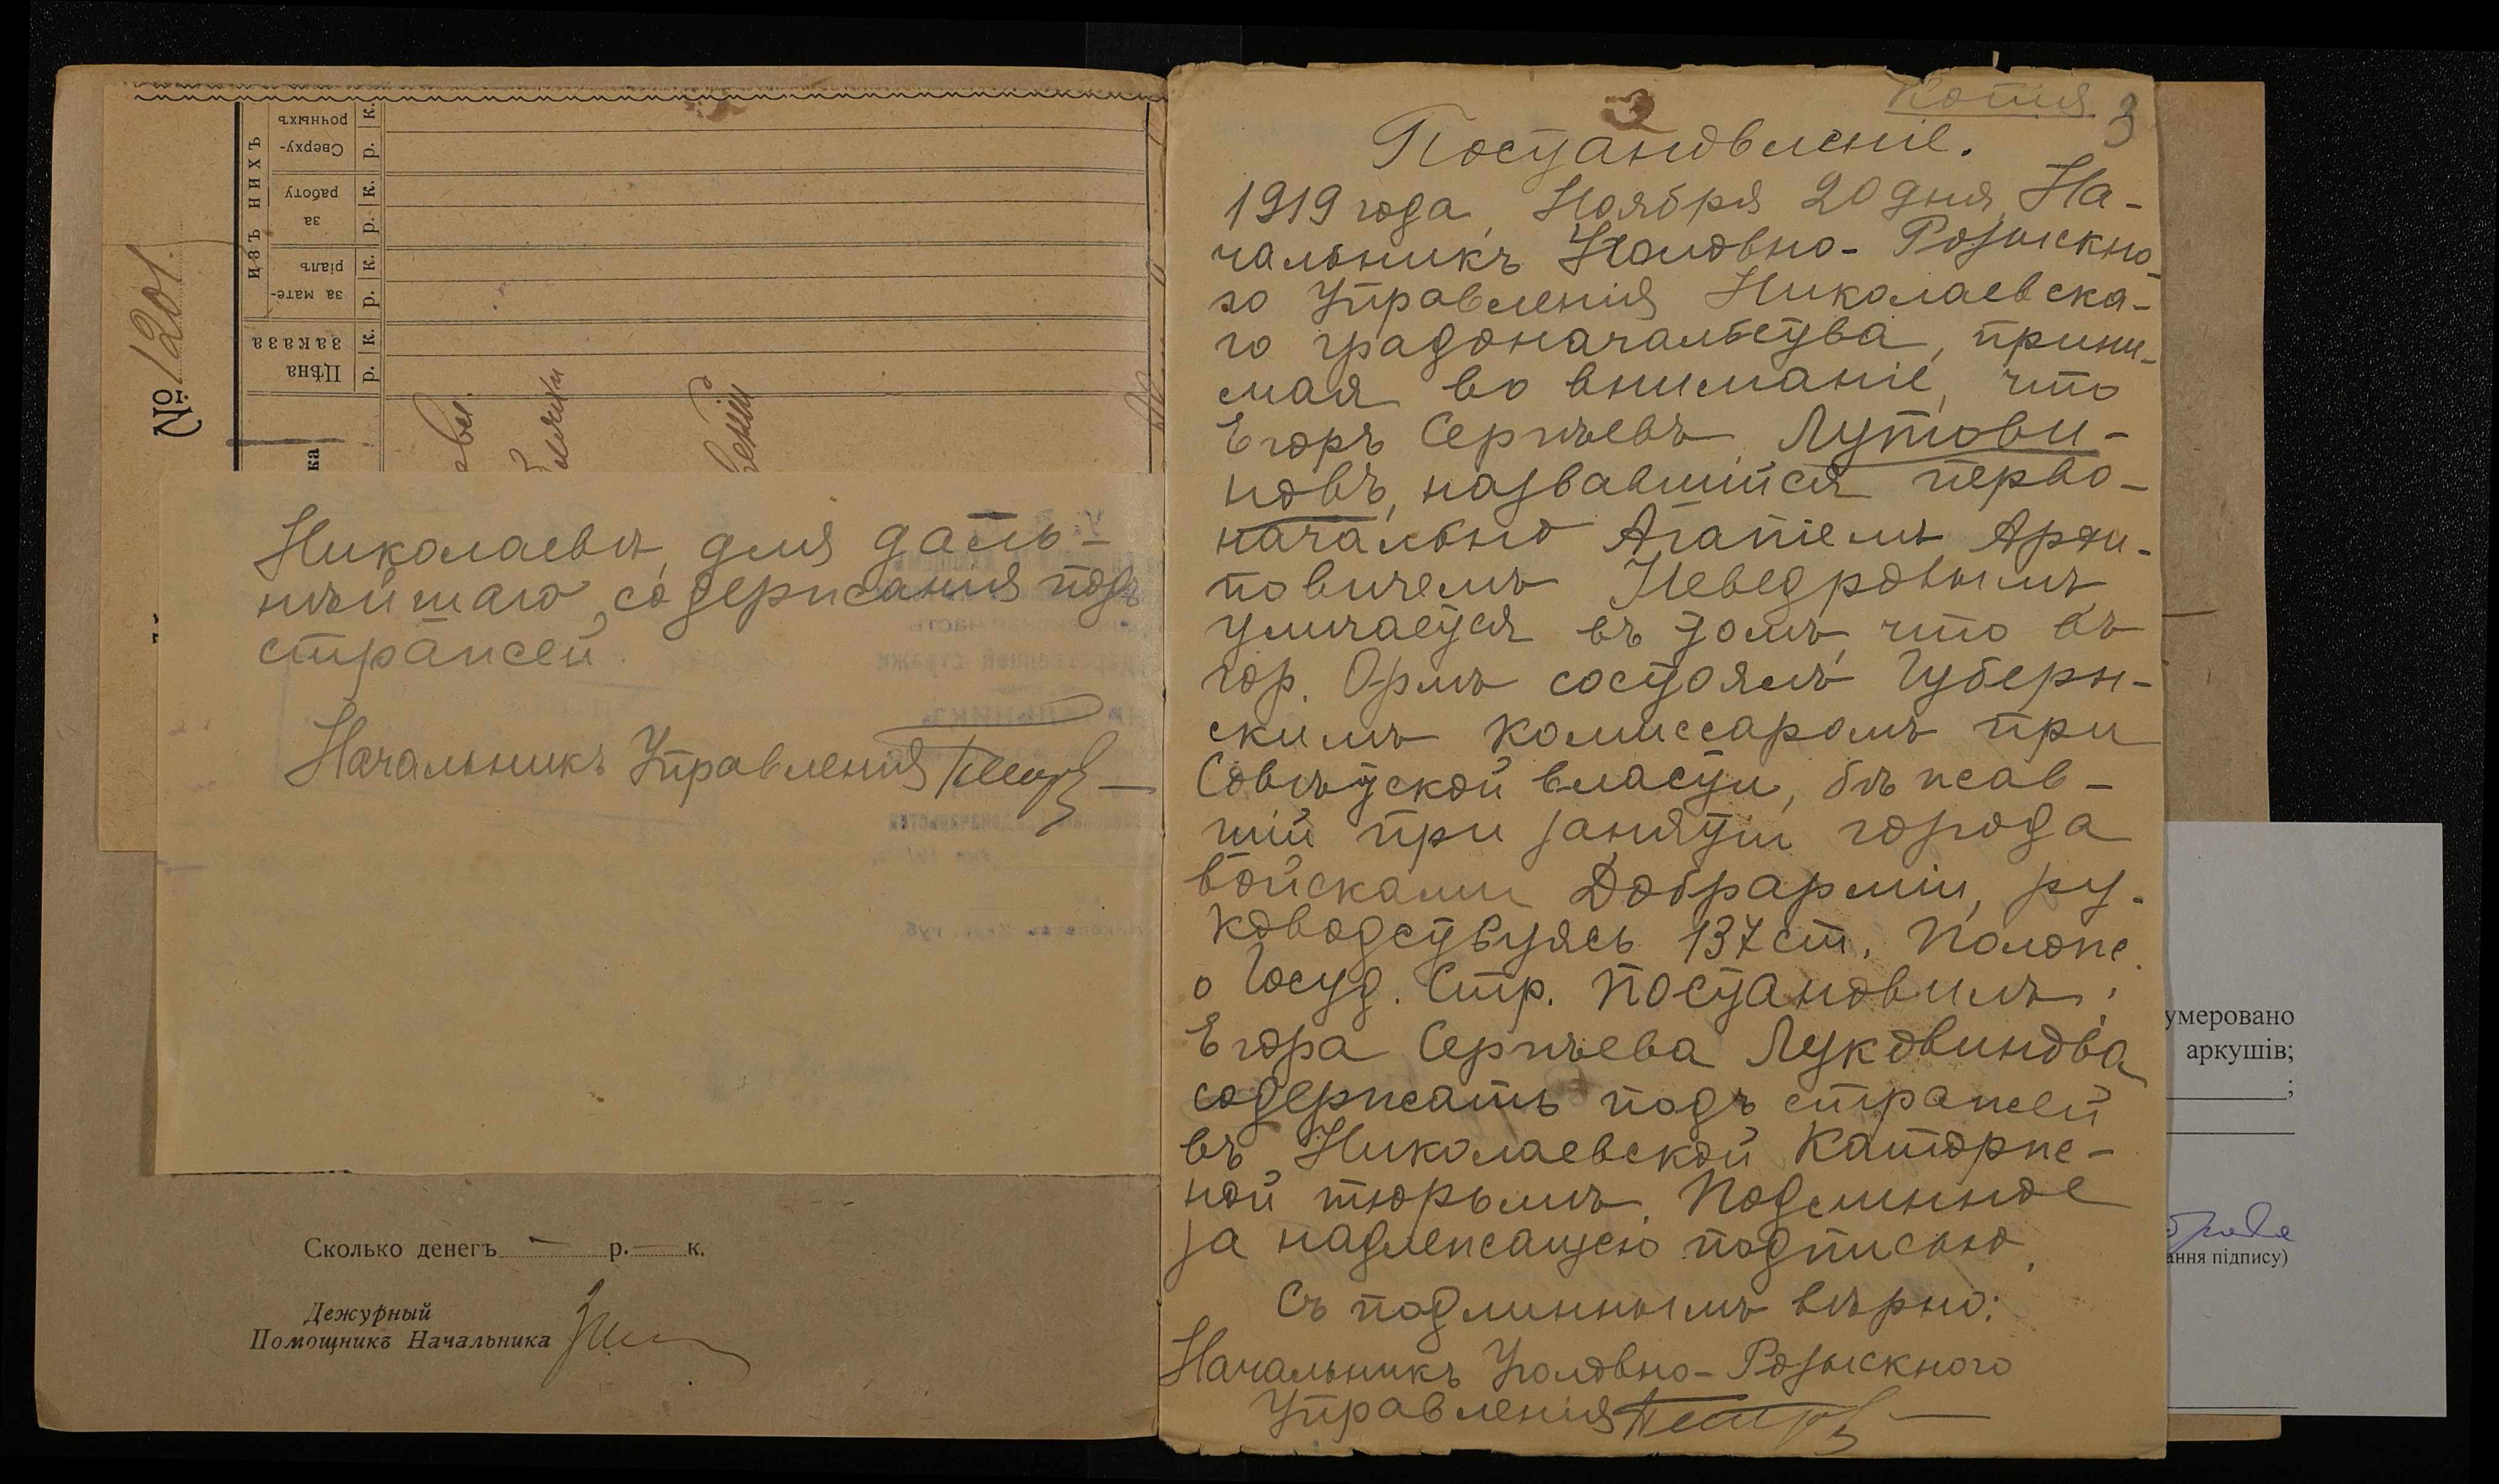 № 1201.
изъ нихъ
Сверху-
рочныхъ
р. к.
за
работу
р. к.
за мате-
ріалъ
р. к.
Цѣна
заказа
р. к.
ка
Николаевъ, для даль-
нѣйшаго содержания подъ
стражей.
Начальникъ Управления
Сколько денегъ — р. — к.
Дежурный
Помощникъ Начальника
Копія
3
3
Постановленіе.
1919 года, Ноября 20 дня, На-
чальникъ Уголовно-Розыскно-
го Управленія Николаевска-
го градоначальства, прини-
мая во вниманіе, что
Егоръ Сергѣевъ Лутови-
новъ, назвавшийся перво-
начально Агапіемъ Архи-
повичемъ Неведровымъ
уличается въ томъ, что въ
гор. Орлѣ состоялъ Губерн-
скимъ комиссаромъ при
Совѣтской власти, бѣжав-
шій при занятіи города
войсками Добрарміи, ру-
ководствуясь 137 ст. Полож.
о Госуд. Стр. постановилъ:
Егора Сергѣева Лукавинова
содержать подъ стражей
въ Николаевской Каторж-
ной тюрьмѣ. Подлинное
за надлежащею подписью.
Съ подлиннымъ вѣрно:
Начальникъ Уголовно-Розыскного
Управленія
умеровано
аркушів;
;
ання підпису)